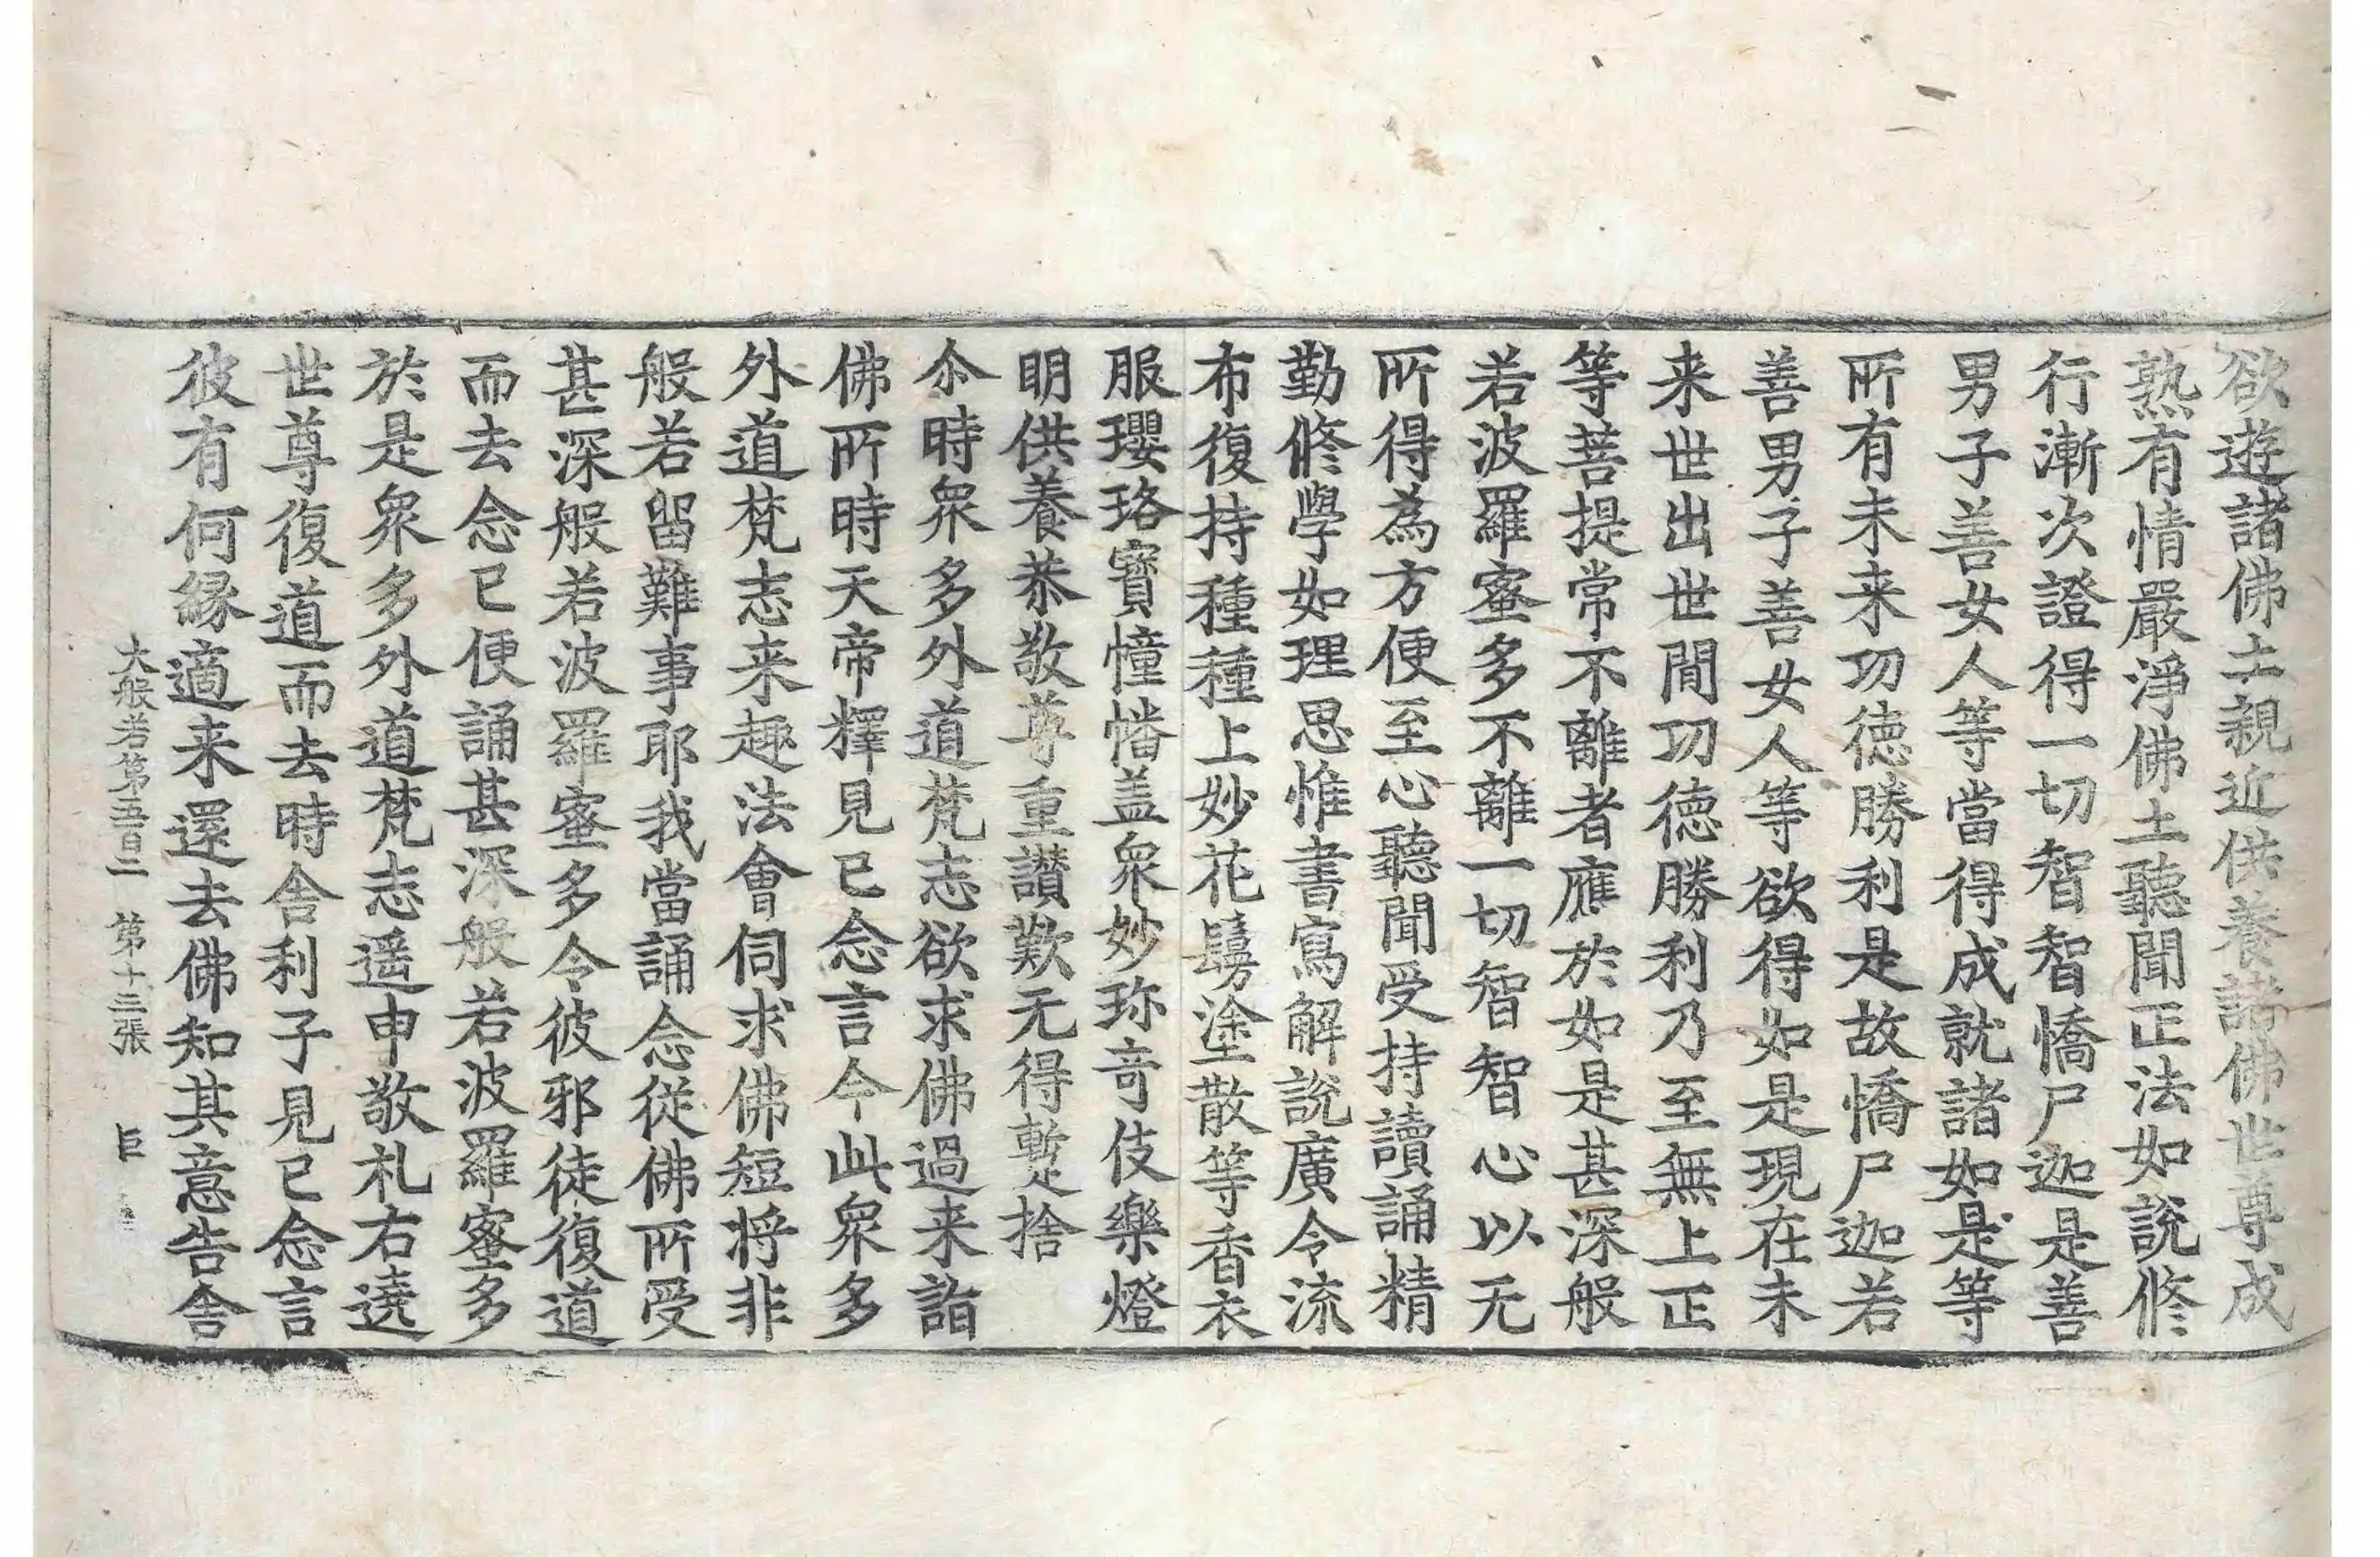 欲遊諸佛土親近供養諸佛世尊成
熟有情嚴淨佛土聽聞正法如說修
行漸次證得一切智智憍尸迦是善
男子善女人等當得成就諸如是等
所有未来功徳勝利是故憍尸迦若
善男子善女人等欲得如是現在未
来世出世間功徳勝利乃至無上正
等菩提常不離者應於如是甚深般
若波羅蜜多不離一切智智心以无
所得為方便至心聽聞受持讀誦精
勤修學如理思惟書寫解說廣令流
布復持種種上妙花鬘塗散等香衣
服瓔珞寶幢幡盖衆妙珎奇伎樂燈
明供養恭敬尊重讃歎无得暫捨
尒時衆多外道梵志欲求佛過来詣
佛所時天帝釋見已念言今此衆多
外道梵志来趣法會伺求佛短将非
般若留難事耶我當誦念從佛所受
甚深般若波羅蜜多令彼邪徒復道
而去念已便誦甚深般若波羅蜜多
於是衆多外道梵志遥申敬礼右遶
世尊復道而去時舍利子見已念言
彼有何縁適来還去佛知其意告舍
大般若第五百二 第十三張 臣